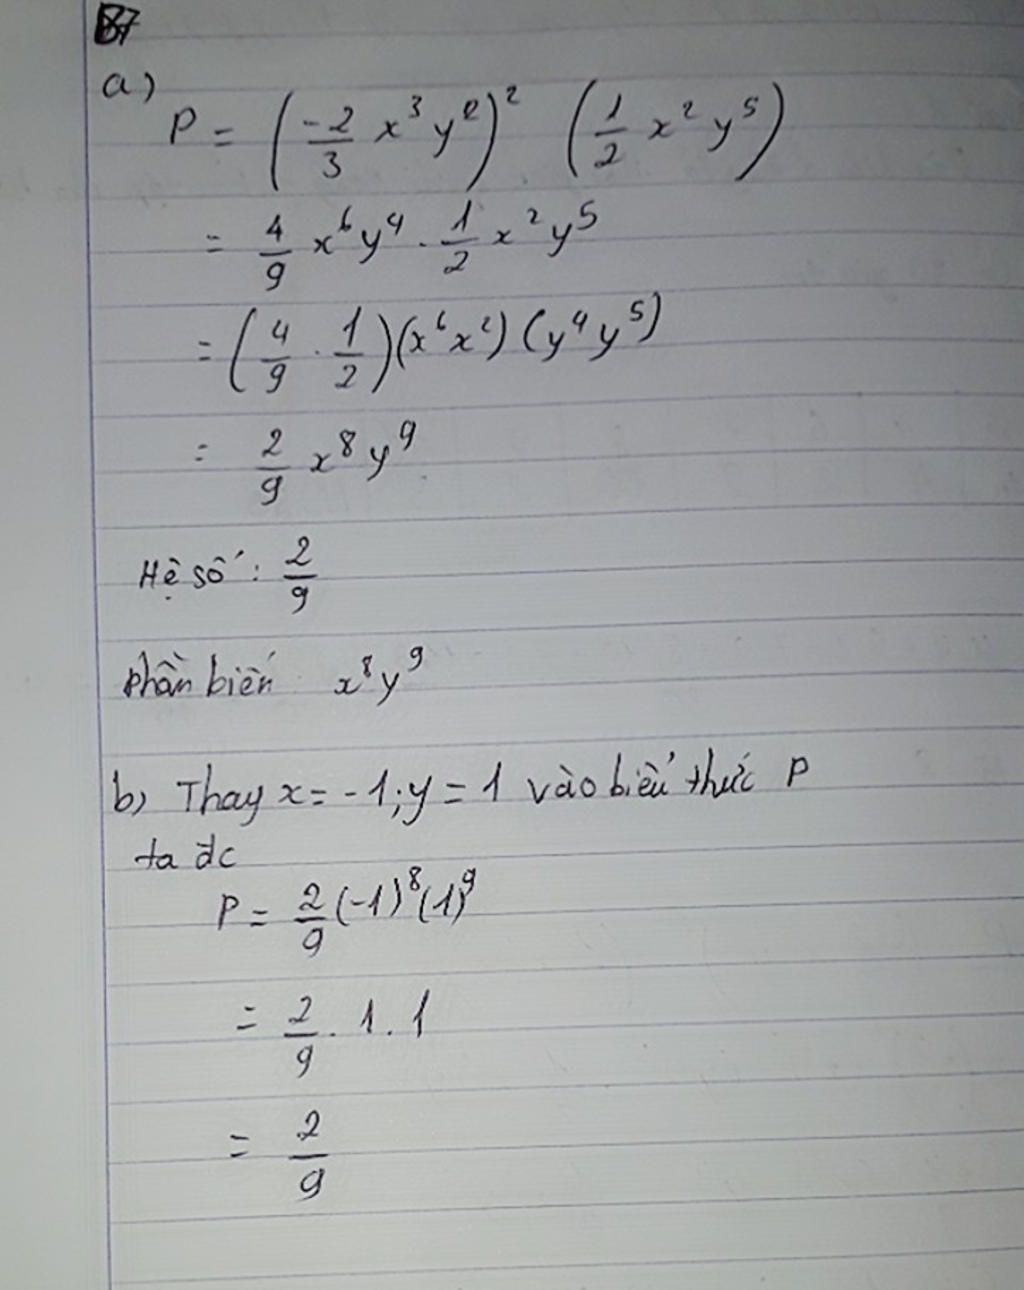 B7
a)
P = (-2/3 x³y²)² (1/2 x²y⁵)
= 4/9 x⁶y⁴ . 1/2 x²y⁵
= (4/9 . 1/2)(x⁶x²)(y⁴y⁵)
= 2/9 x⁸y⁹
Hệ số : 2/9
phần biến x⁸y⁹
b) Thay x = -1; y = 1 vào biểu thức P
ta đc
P = 2/9 (-1)⁸(1)⁹
= 2/9 . 1 . 1
= 2/9